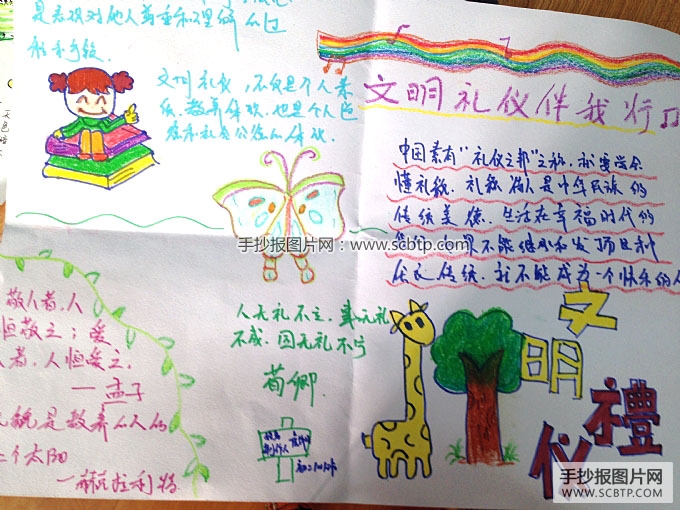 是表现对他人尊重和理解的过
文明礼仪伴我行
文明礼仪，不仅是个人素
质、教养体现，也是个人道
德和社会公德的体现。
中国素有“礼仪之邦”之称，我要学会
懂礼貌．礼貌待人是中华民族的
传统美德．生活在幸福时代的
不能继承和发
优良传统．就不能成为一个快乐的人
手抄报图片网：www.scbtp.com
敬人者，人
恒敬之；爱
者，人恒爱之．
——孟子
人无礼不立，事无礼
不成，国无礼不宁
荀卿．
礼貌是教养的人的
二个太阳
—赫拉利特
文
明
禮
仪
手抄报图片网
WWW.SCBTP.COM